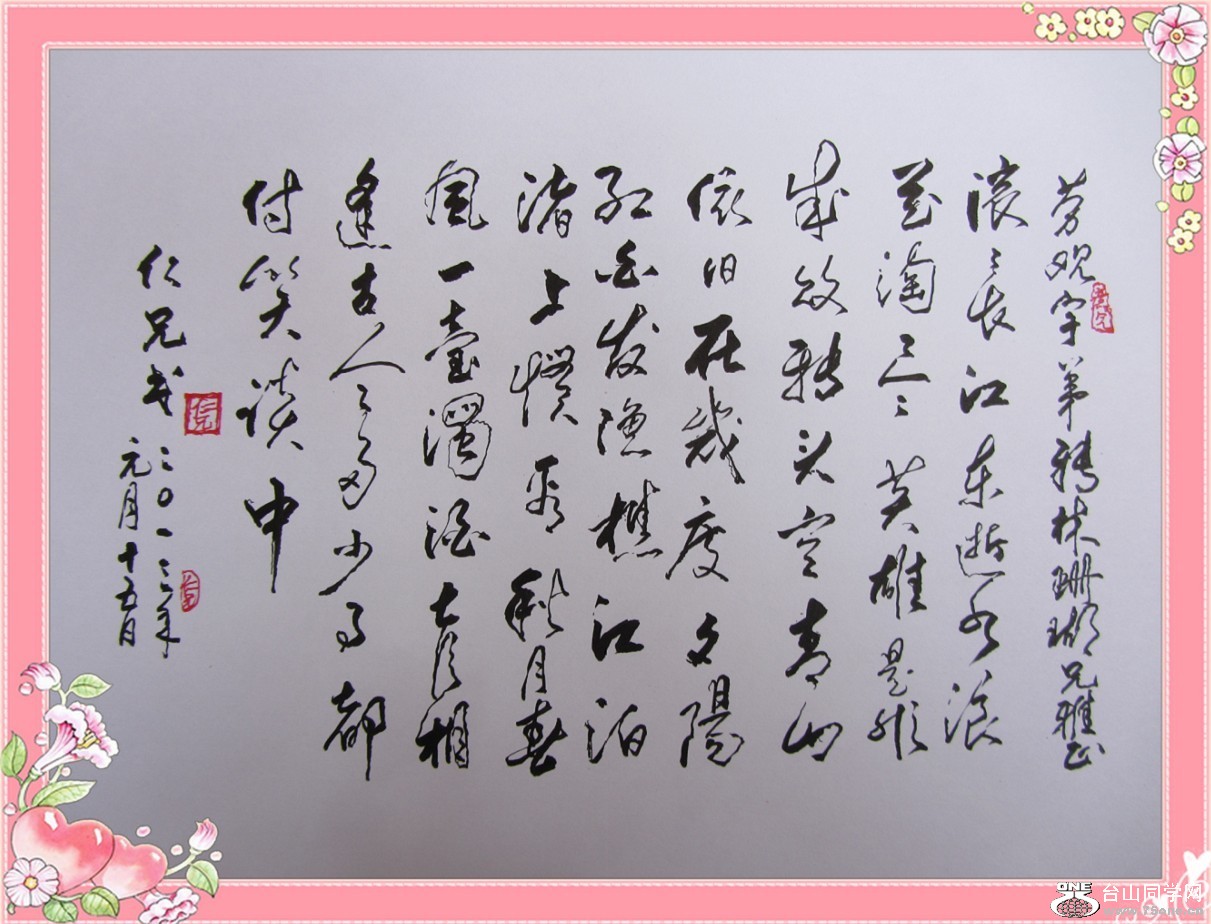 劳观宇弟转林珊瑚兄雅正
滚〻长江东逝水浪
花淘尽英雄是非
成败转头空青山
依旧在幾度夕陽
红白发渔樵江泊
渚上惯看秋月春
風一壺濁酒喜相
逢古今多少事都
付笑谈中
仁兄书
二〇一三年
元月十五日
ONE
台山同学网